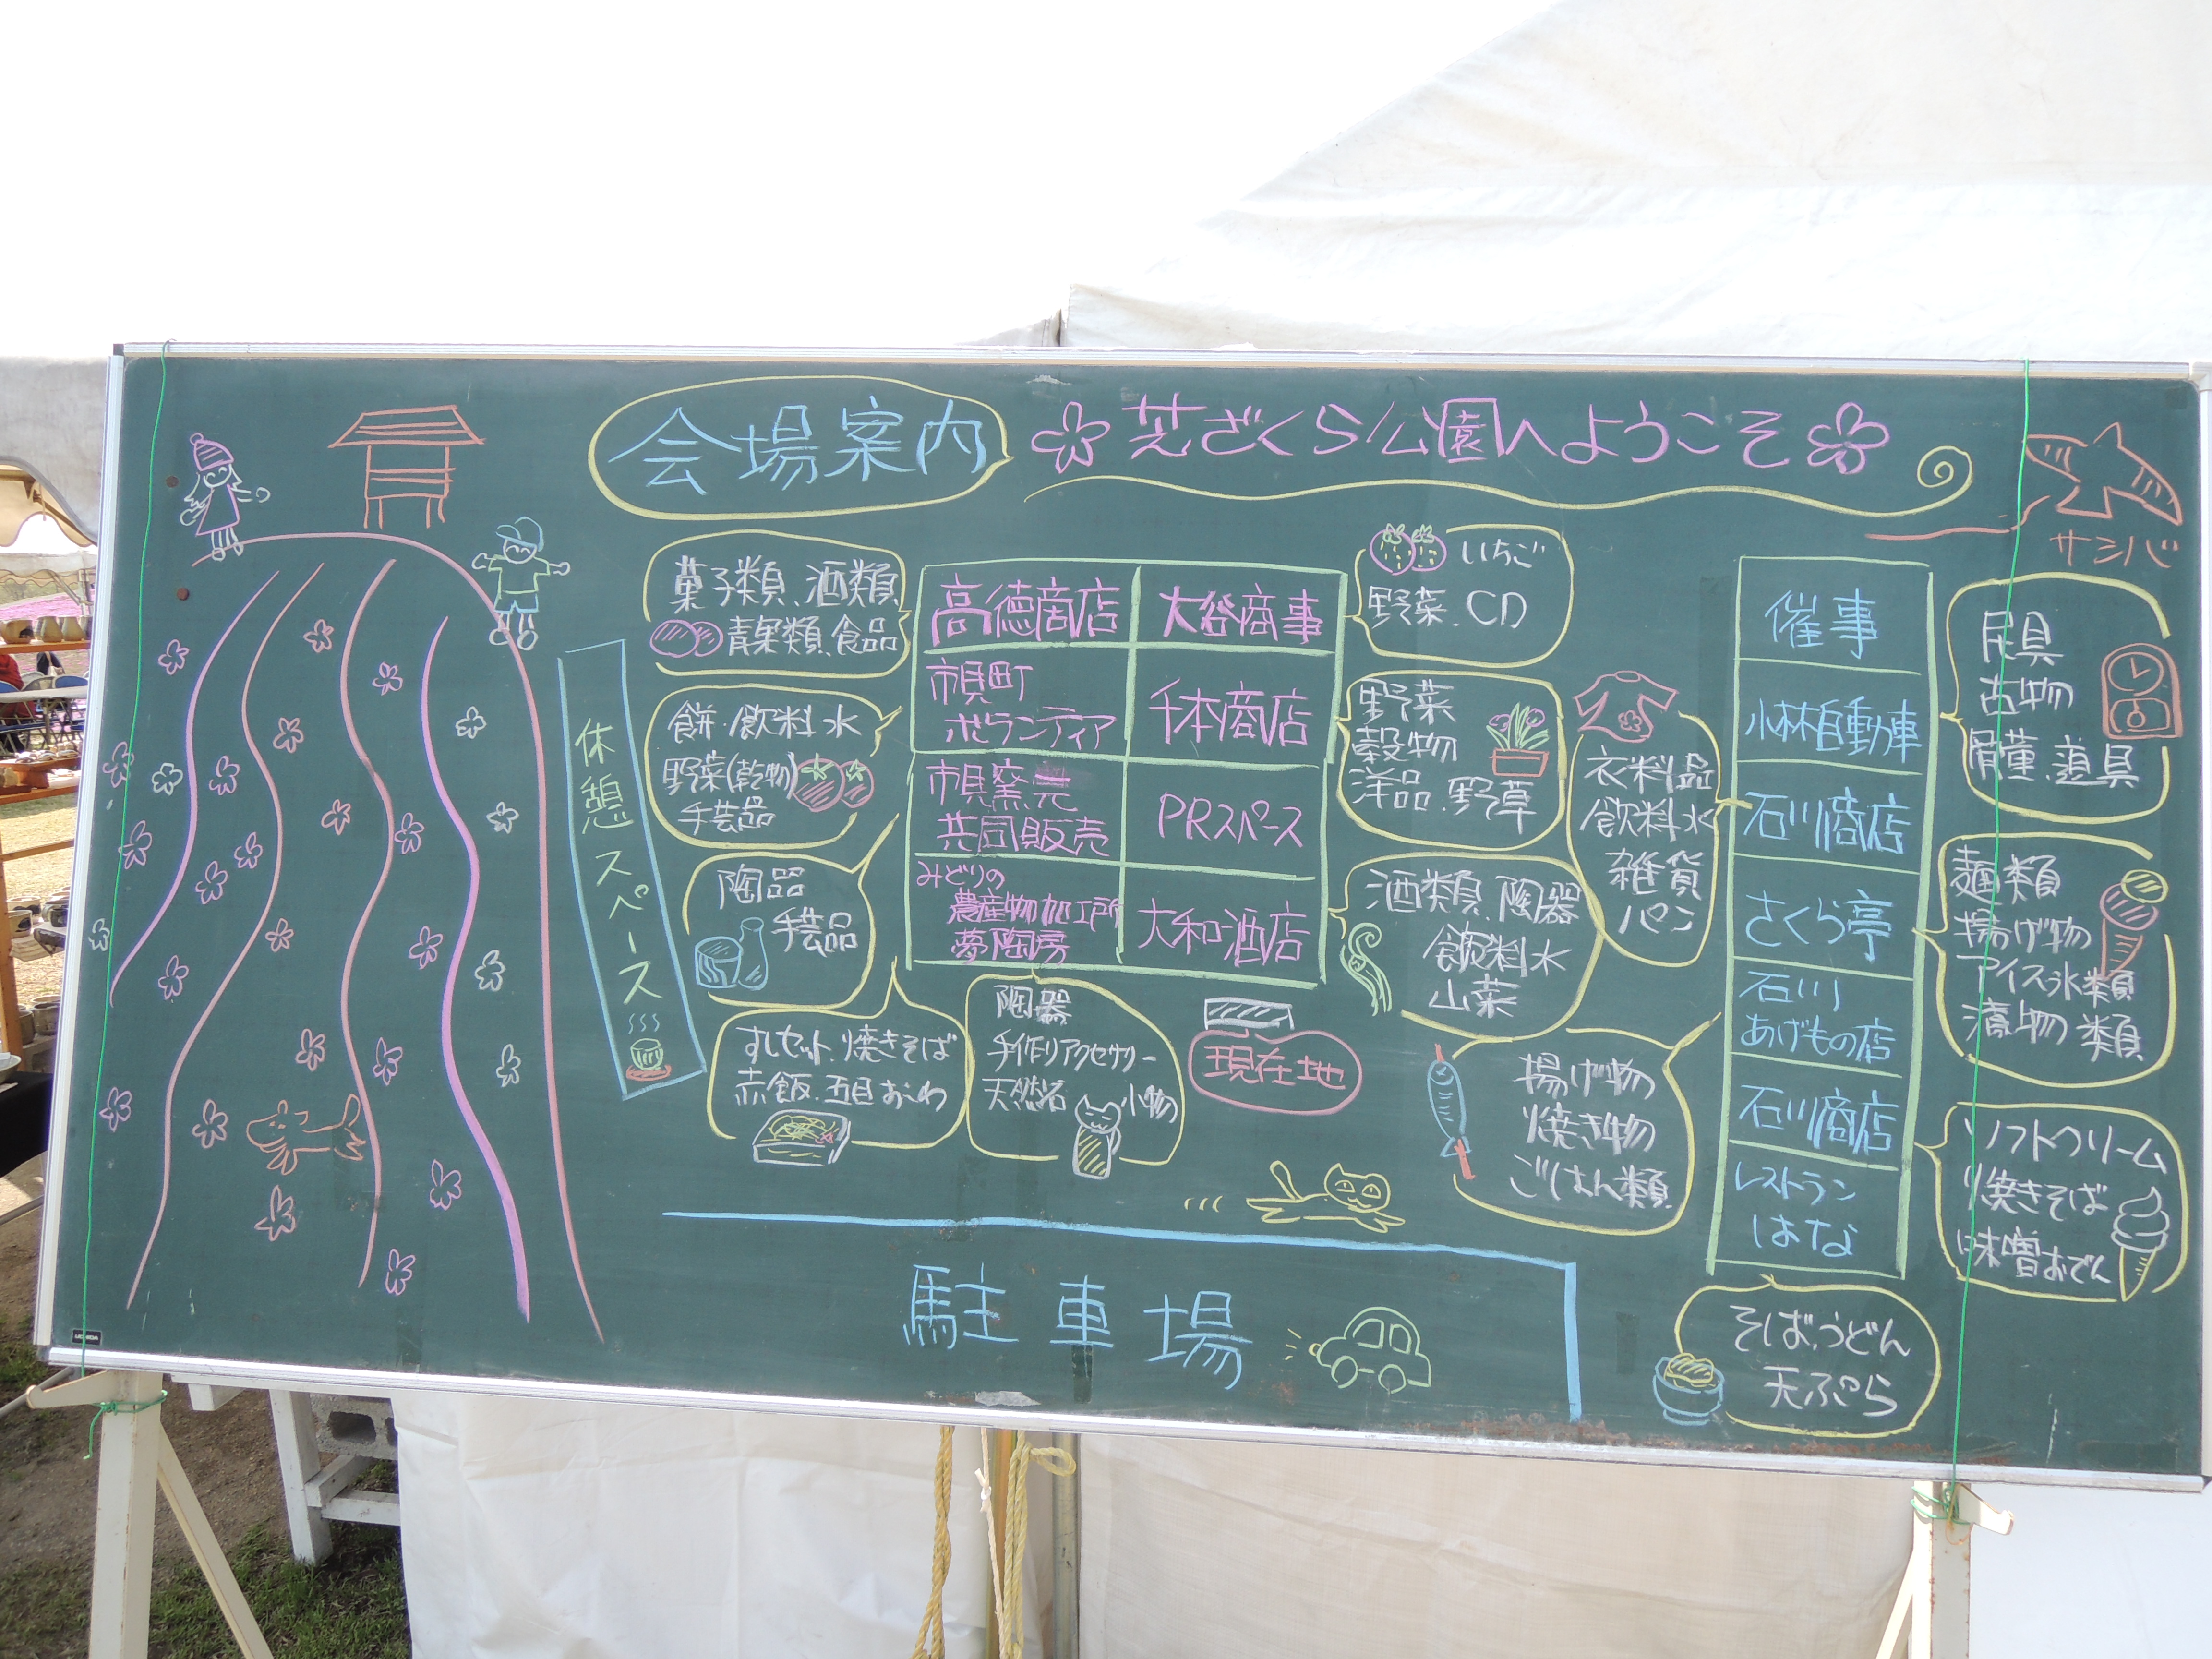 会場案内
芝ざくら公園へようこそ
サシバ
菓子類、酒類
青果類、食品
餅・飲料水
野菜(乾物)
手芸品
陶品
手芸品
すしセット、焼きそば
赤飯、五目おこわ
陶器
手作りアクセサリー
天然石
小物
休憩スペース
高徳商店
大谷商事
市貝町
ボランティア
千本商店
市貝窯元
共同販売
PRスペース
みどりの
農産物加工所
夢陶房
大和酒店
現在地
いちご
野菜、CD
野菜
穀物
洋品、野草
酒類、陶器
飲料水
山菜
衣料品
飲料水
雑貨
パン
揚げ物
焼き物
ごはん類
催事
小林自動車
石川商店
さくら亭
石川
あげもの店
石川商店
レストラン
はな
民具
古物
骨董、道具
麺類
揚げ物
アイス氷類
漬物類
ソフトクリーム
焼きそば
味噌おでん
そば、うどん
天ぷら
駐車場
UCHIDA